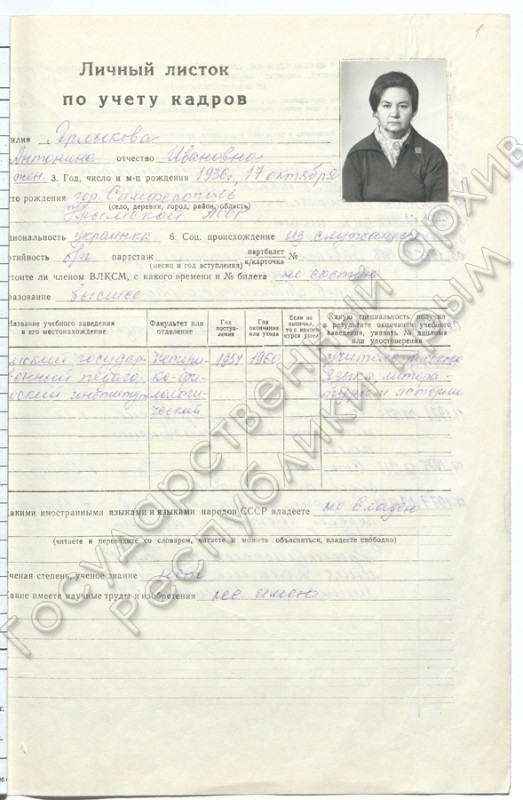 1
Личный листок
по учету кадров
илия Ярлыкова
Антонина отчество Ивановна
жен. 3. Год, число и м-ц рождения 1936г, 17 октября
то рождения гор. Симферополь
(село, деревня, город, район, область)
Крымской АССР
циональность украинка 6. Соц. происхождение из служащих
ртийность б/п партстаж партбилет № к/карточка
(месяц и год вступления)
стоите ли членом ВЛКСМ, с какого времени и № билета не состою
разование высшее
Название учебного заведения и его местонахождение
Факультет или отделение
Год поступления
Год окончания или ухода
Если не окончил, то с какого курса ушел
Какую специальность получил в результате окончания учебного заведения, указать № диплома или удостоверения
мский государ- Истори- 1954 1960 Учитель русского
венный педаго- ко-фи- языка, литера-
ческий институт лологи- туры и истории
ческий
акими иностранными языками и языками народов СССР владеете не владею
(читаете и переводите со словарем, читаете и можете объясняться, владеете свободно)
ченая степень, ученое звание нет
акие имеете научные труды и изобретения не имею
Государственный архив
Республики Крым